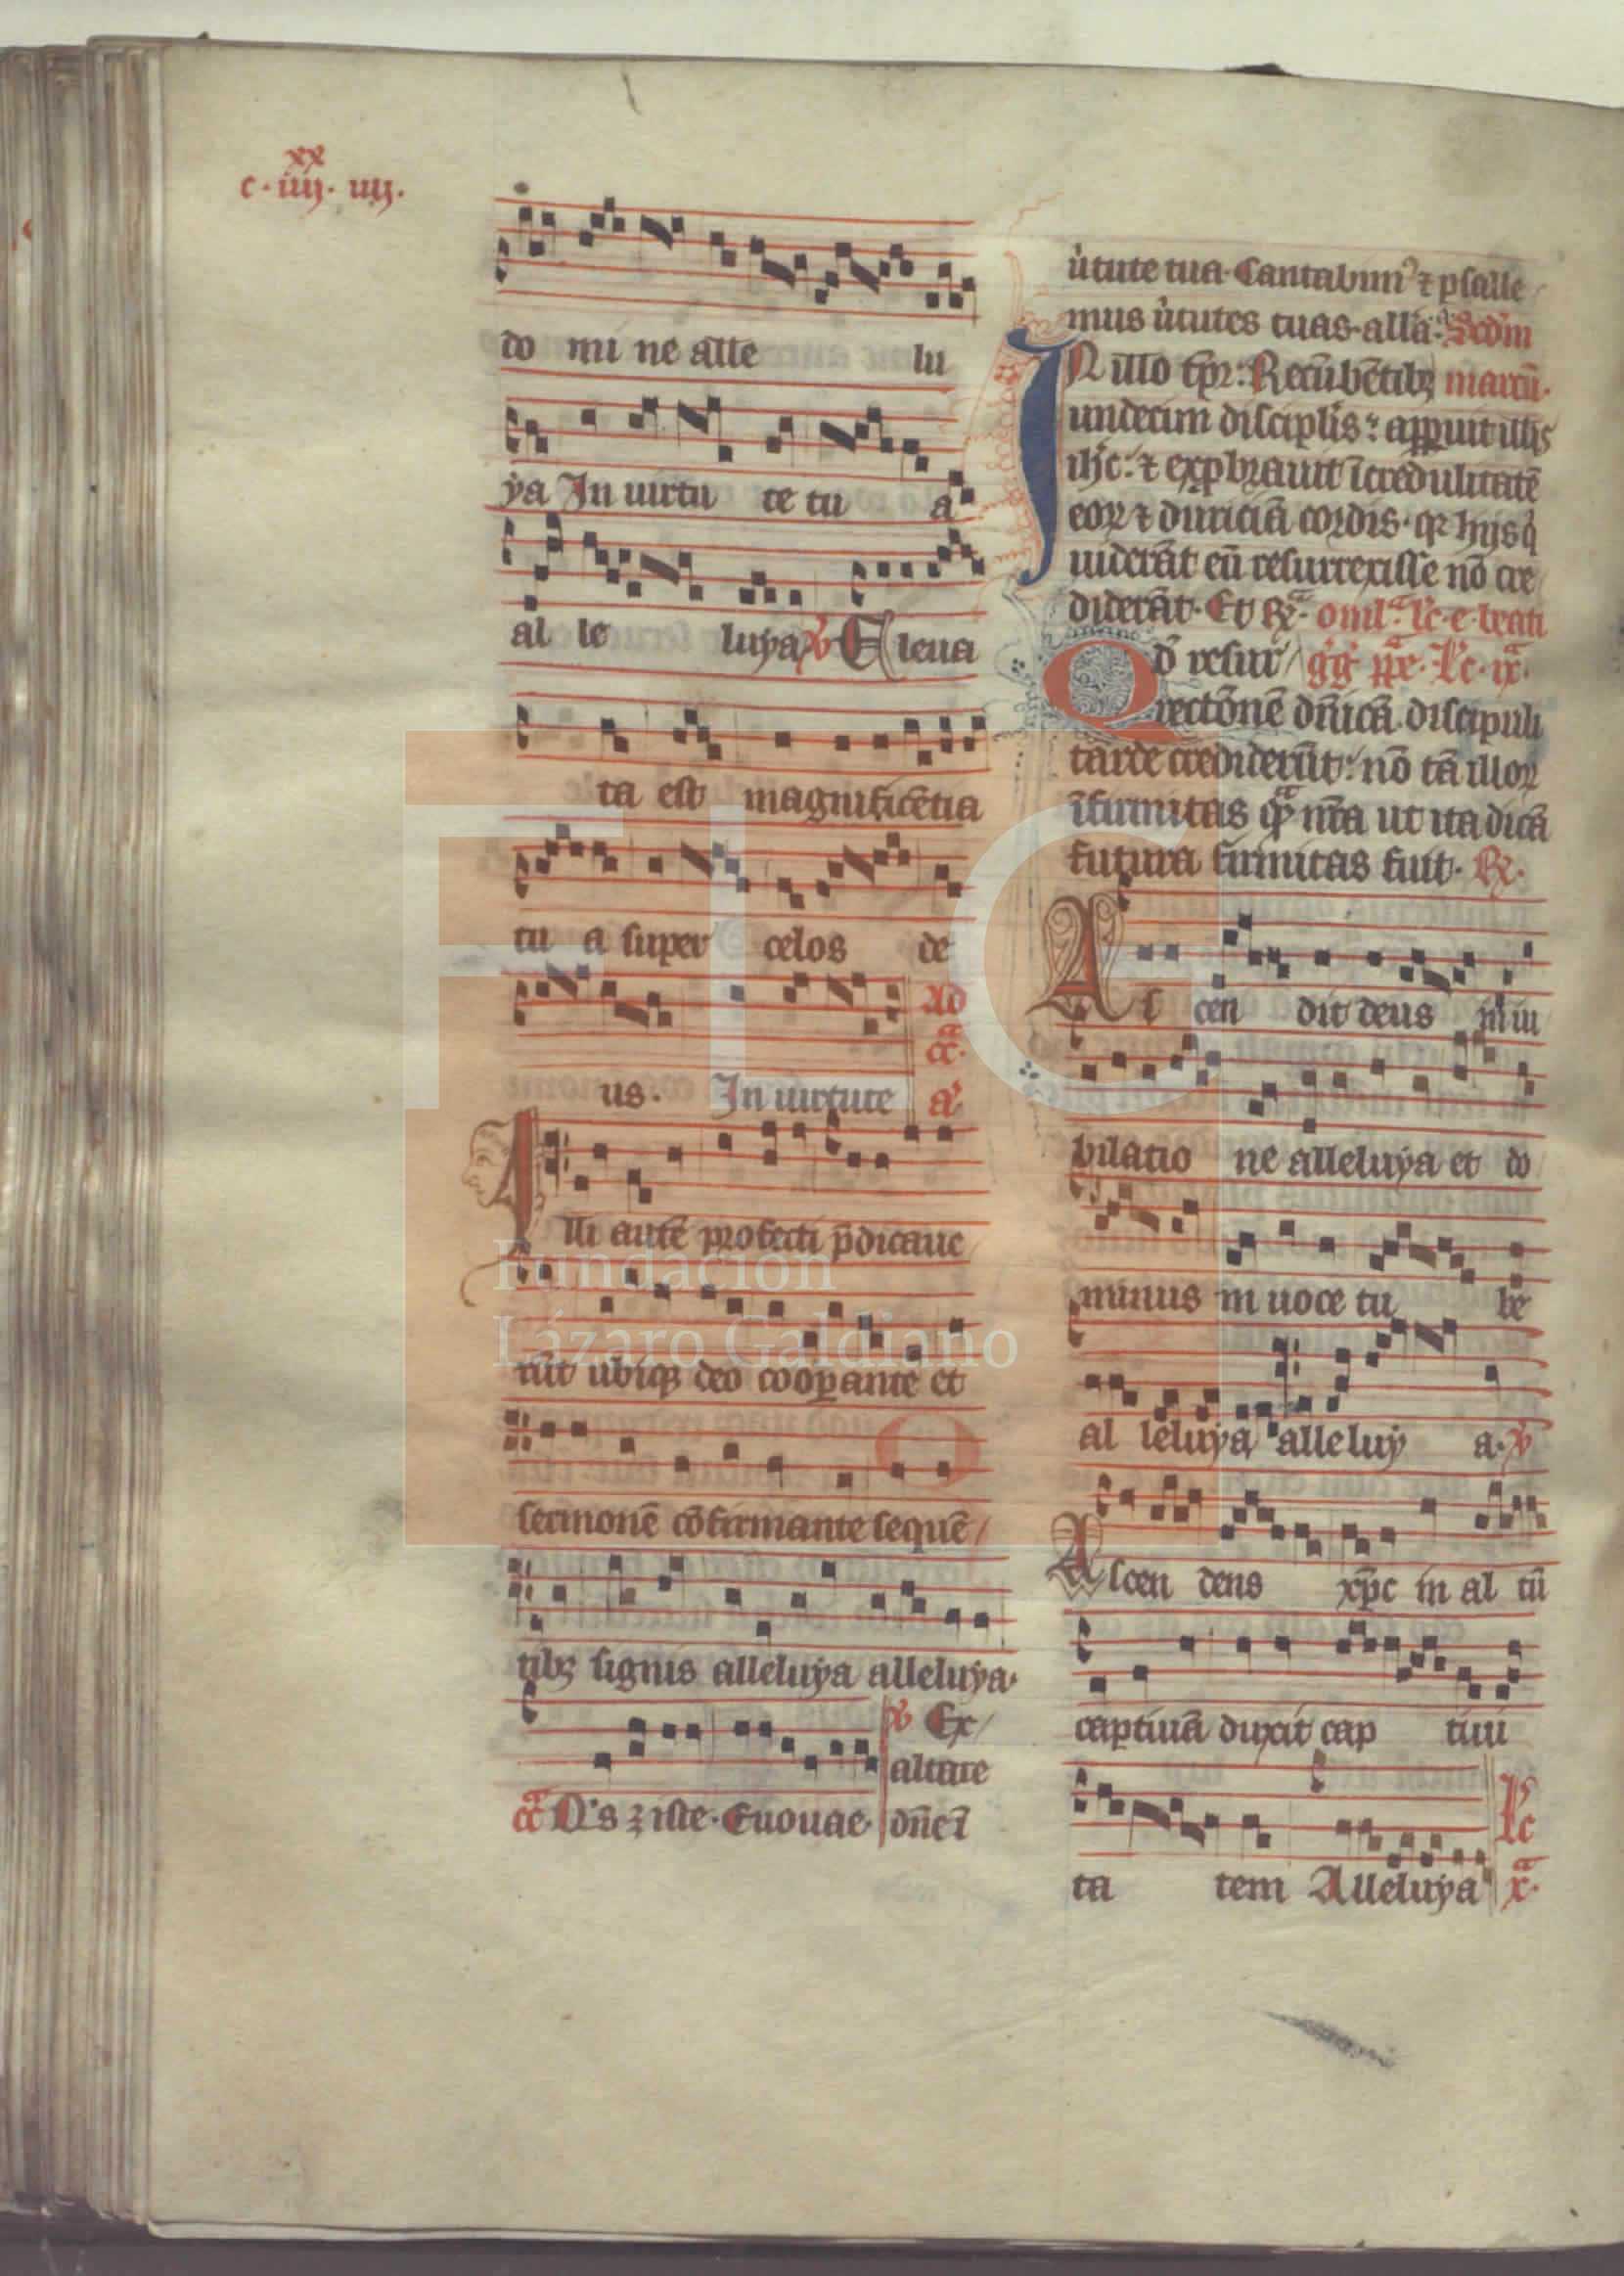 xx
c · iiij · vij ·
do mi ne alle lu
ya In uirtu te tu a
al le luya ℣ Eleua
ta est magnificẽtia
tu a super celos de
us. In uirtute
Ad
cã.
añ
Illi autẽ profecti p̄dicaue
rũt ubiqꝫ deo cooꝑante et
sermonẽ cõfirmante sequẽ/
tibꝫ signis alleluya alleluya.
℣ Ex/
altate
dñe ĩ
Euouae.
ùtute tua. Cantabimꝰ ⁊ psalle
mus ùtutes tuas. alla. Scdm
IN illo tp̃r: Recũbẽtibꝫ marcũ.
undecim discipl'is: apparuit illis
ih̃c: ⁊ exprobrauit ĩcredulitatẽ
eoꝝ ⁊ duriciã cordis. qꝛ hijs q̇
uiderãt eũ resurrexisse nõ cre
diderãt. Et Rª. omlª. lc̃. e. beati
Qđ resur/ gg̃. pp̃e. Lc̃. ixª.
rectõnẽ dñicã discipuli
tarde crediderũt: nõ tã illoꝝ
ĩfirmitas qª̃ nr̃a ut ita dicã
futura firmitas fuit. ℟.
As cen dit deus in iu
bilatio ne alleluya et do
minus in uoce tu be
al leluya alleluy a. ℣
Ascen dens xp̃c in al tũ
captiuã duxit cap tiui
ta tem Alleluya
Lc̃
xª.
Fundación
Lázaro Galdiano
FLG